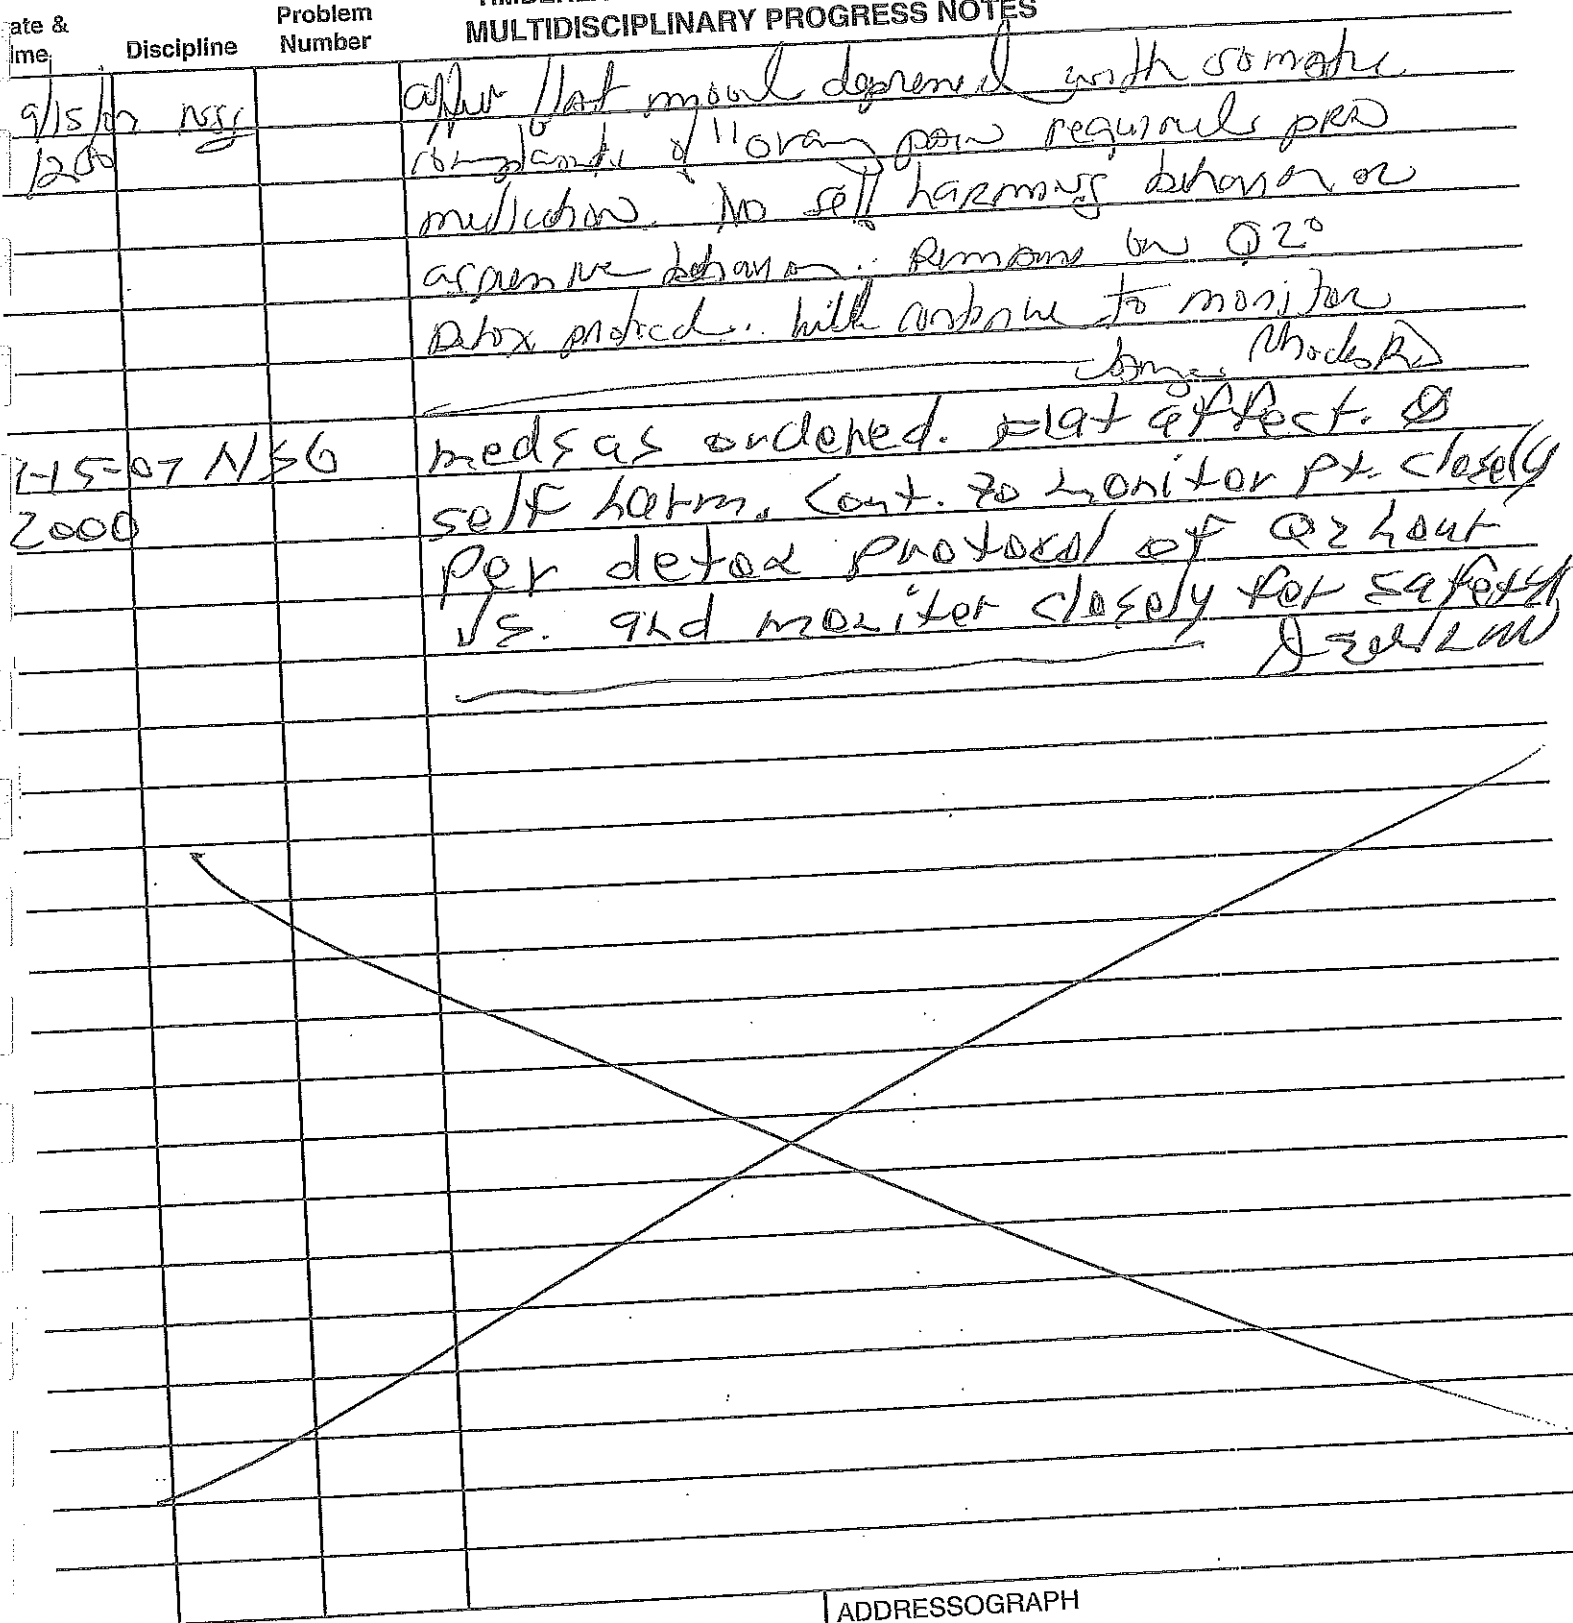 ate &
ime
Discipline
Problem
Number
MULTIDISCIPLINARY PROGRESS NOTES
9/15/07 NSG
1200
affect flat mood depressed with somatic
complaints of pain PRN
medication. No self harming behavior or
aggressive behavior. Remains on Q2°
Detox protocol.. Will continue to monitor
Rhodes RN
-15-07 NSG
2000
meds as ordered. Flat affect. Ø
self harm. Cont. to monitor pt. closely
per detox protocol of Q2 hour
VS. and moniter closely for safety
ADDRESSOGRAPH